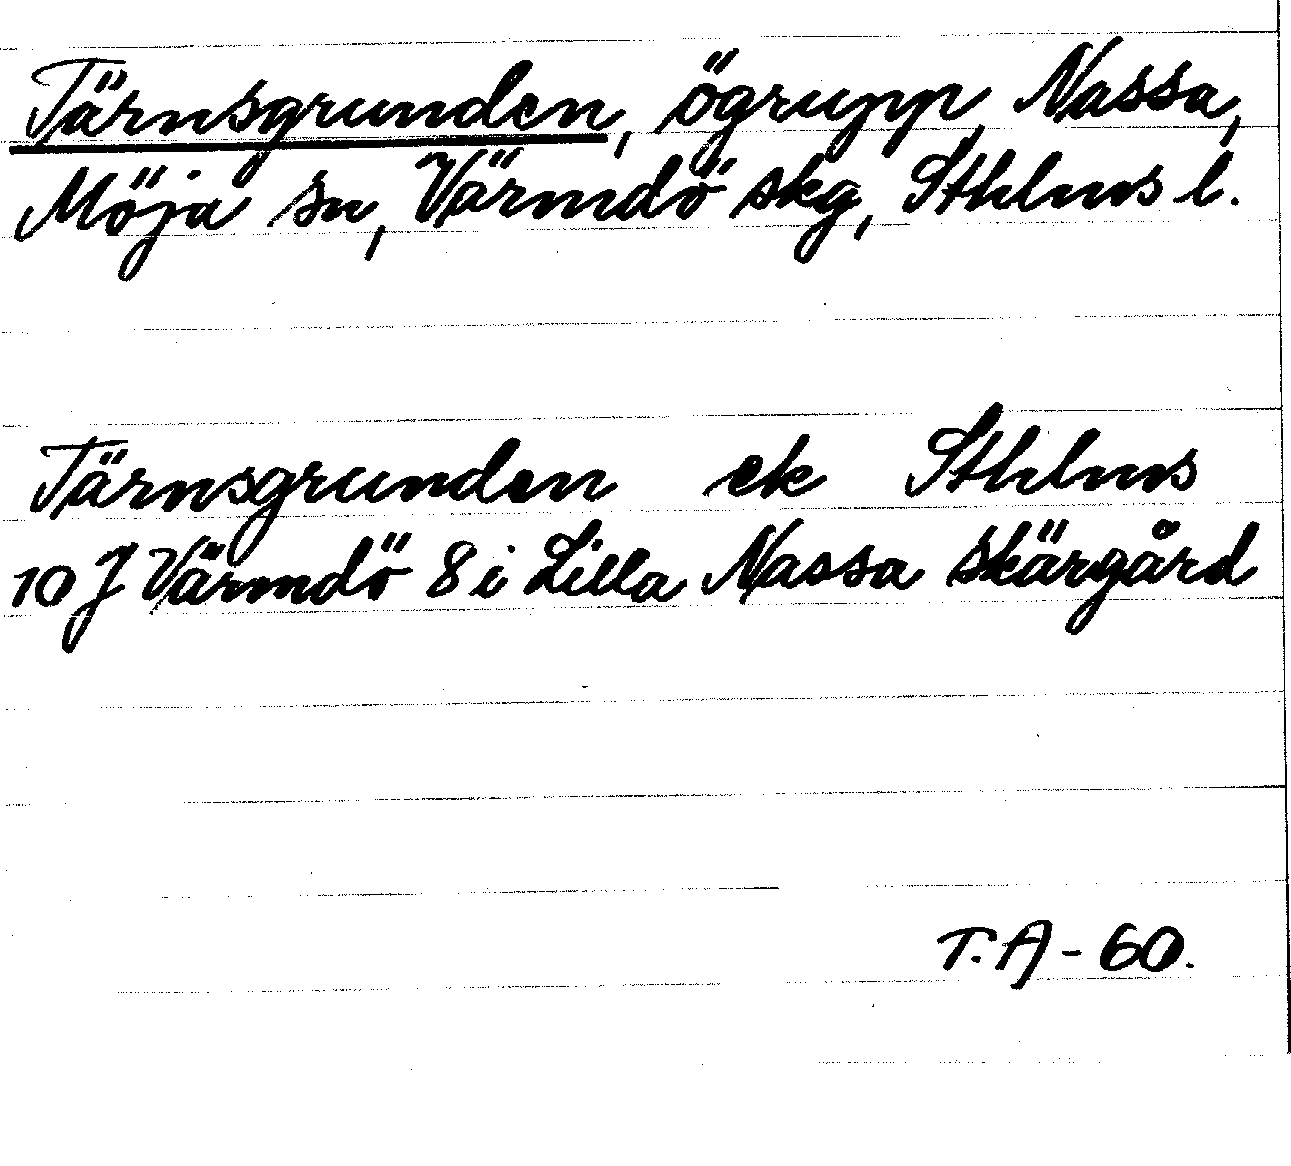 Tärnsgrunden, ögrupp, Nassa,
Möja sn, Värmdö skg, Sthlms l.
Tärnsgrunden ek Sthlms
10 J Värmdö 8 i Lilla Nassa skärgård
T.A - 60.